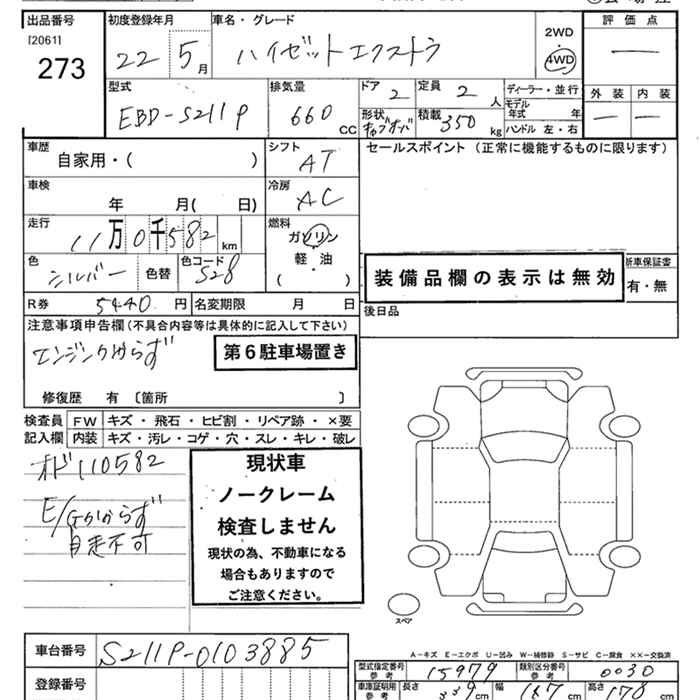 出品番号 初度登録年月 車名・グレード 評価点
[2061] 22 5月 ハイゼットエクストラ 2WD ―
273 4WD
型式 排気量 ドア 定員 ディーラー・並行 外装 内装
EBD-S211P 660 CC 2 2人 モデル年式 年 ― ―
形状 積載 350kg ハンドル 左・右
車歴 シフト セールスポイント(正常に機能するものに限ります)
自家用・( ) AT
車検 冷房
年 月( 日) AC
走行 燃料
11万0千582km ガソリン
軽・油
( )
色 色コード 装備品欄の表示は無効 新車保証書
シルバー 色替 S28 有・無
R券 5440円 名変期限 月 日 後日品
注意事項申告欄(不具合内容等は具体的に記入して下さい)
エンジンかからず 第6駐車場置き
修復歴 有 〔箇所 〕
検査員 FW キズ・飛石・ヒビ割・リペア跡・×要
記入欄 内装 キズ・汚レ・コゲ・穴・スレ・キレ・破レ
オド110582 現状車
ノークレーム
E/Gかからず 検査しません
自走不可 現状の為、不動車になる
場合もありますので
ご注意ください。
スペア
A-キズ E-エクボ U-凹み W-補修跡 S-サビ C-腐食 ××-交換済
車台番号 S211P-0103885
型式指定番号 参考 15979 類別区分番号 参考 0030
登録番号 車庫証明用 参考 長さ 339cm 幅 147cm 高さ 178cm